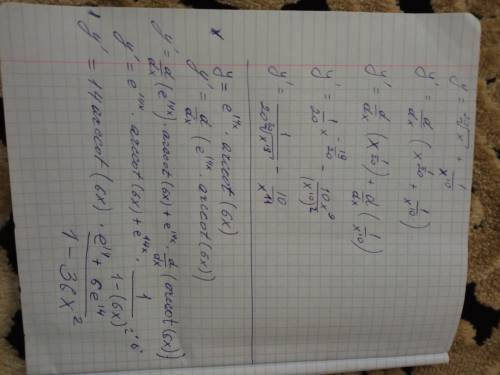 y = ²⁰√x + 1/x¹⁰
y' = d/dx (x^(1/20) + 1/x¹⁰)
y' = d/dx (x^(1/20)) + d/dx (1/x¹⁰)
y' = 1/20 x^(-19/20) - 10x⁹/(x¹⁰)²
y' = 1/(20 ²⁰√x¹⁹) - 10/x¹¹
y = e^(14x) · arccot(6x)
y' = d/dx (e^(14x) · arccot(6x))
y' = d/dx (e^(14x)) · arccot(6x) + e^(14x) · d/dx (arccot(6x))
y' = e^(14x) · arccot(6x) + e^(14x) · 1/(1-(6x)²) · 6
y' = 14 arccot(6x) · (e¹⁴ + 6e¹⁴)/(1-36x²)